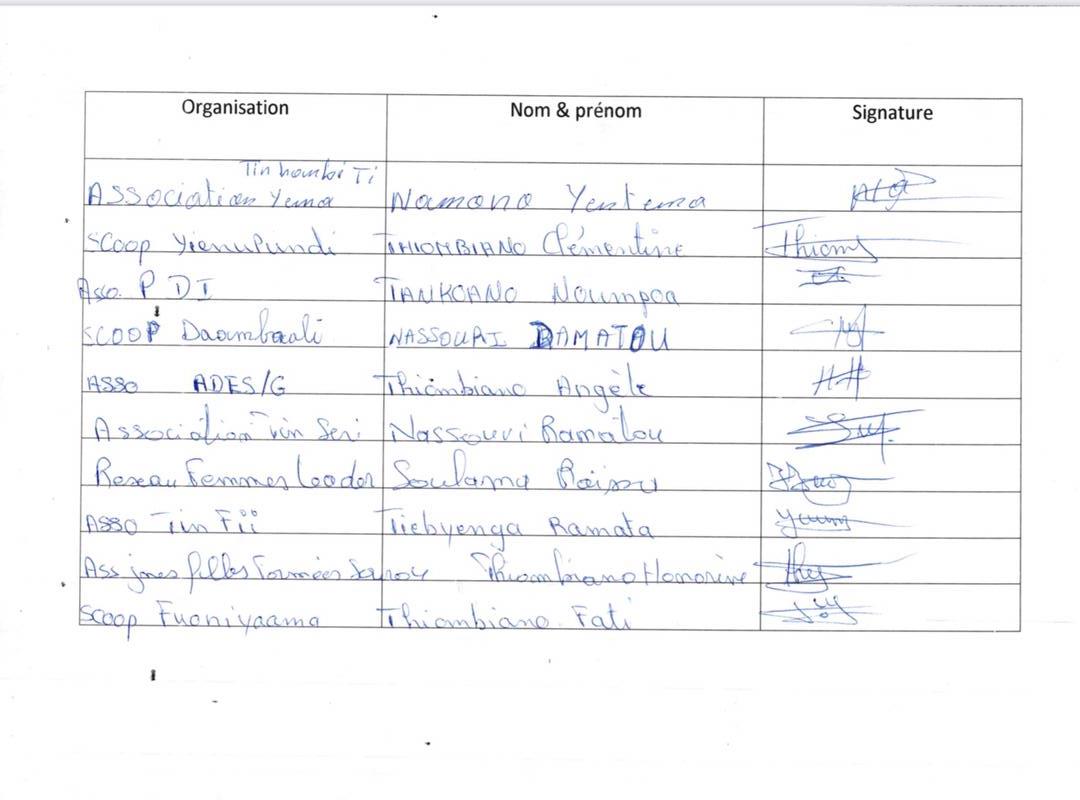 Organisation Nom & prénom Signature
Tin hombi Ti
ASSociation Yema Namono Yentema
SCoop Yienupundi THIOMBIANO Clémentine Thiom
Asso. P D I TANKOANO Noumpoa
SCOOP Daambaali NASSOURI DAMATOU
ASSO ADES/G Thiombiano Angèle
Association Tin Seri Nassouri Ramatou
Reseau Femmes leader Soulama Raïssa
ASSO Tin Fii Tiebyenga Ramata
Ass jnes filles Formées Thiombiano Honorine
SCoop Fuoniyaama Thiombiano Fati